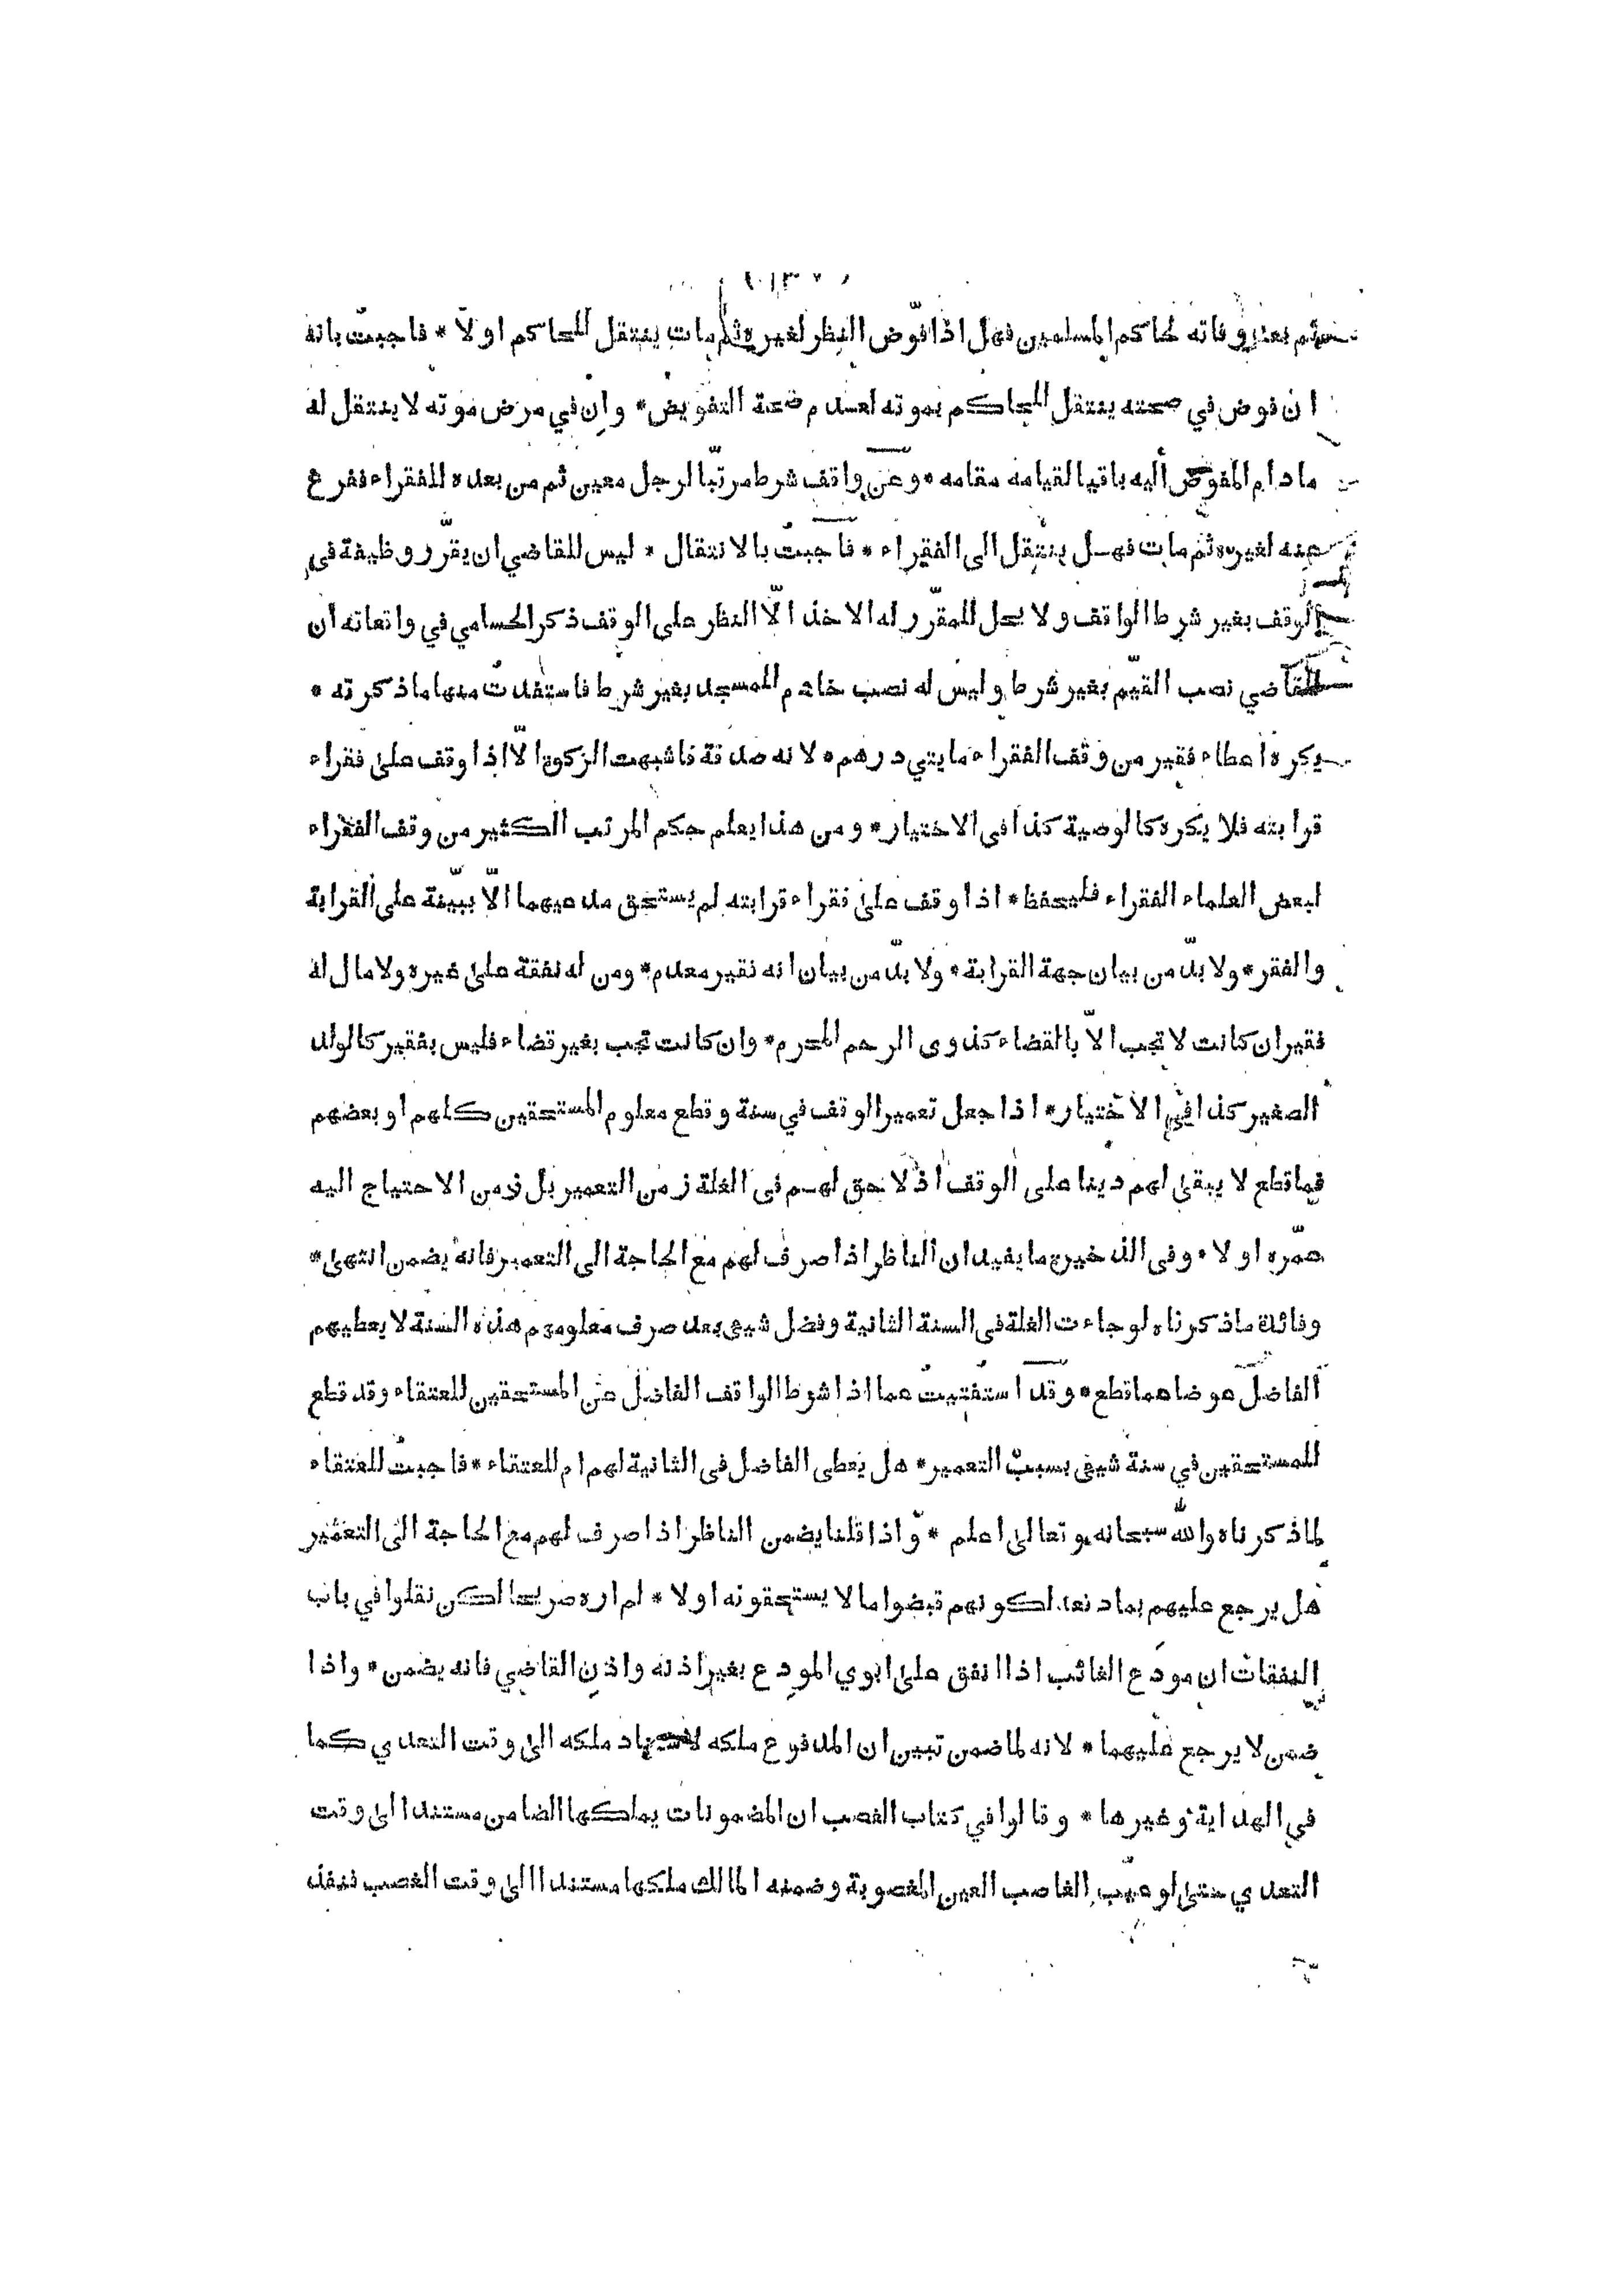 ثم بعد وفاته لحاكم المسلمين فهل اذا فوّض النظر لغيره ثم مات ينتقل للحاكم او لا * فاجبت بانه
ان فوض في صحته ينتقل للحاكم بموته لعدم صحة التفويض * وان في مرض موته لا ينتقل له
ما دام المفوض اليه باقيا لقيامه مقامه * وعن واقف شرط مرتّبا لرجل معين ثم من بعده للفقراء ففرغ
عنه لغيره ثم مات فهل ينتقل الى الفقراء * فاجبت بالانتقال * ليس للقاضي ان يقرّر وظيفة فى
الوقف بغير شرط الواقف ولا يحل للمقرّر له الاخذ الّا النظر على الوقف ذكر الحسامي في واقعاته ان
للقاضي نصب القيّم بغير شرط وليس له نصب خادم للمسجد بغير شرط فاستفدت منها ما ذكرته *
يكره اعطاء فقير من وقف الفقراء مايتي درهم * لانه صدقة فاشبهت الزكوة الّا اذا وقف على فقراء
قرابته فلا يكره كالوصية كذا فى الاختيار * ومن هذا يعلم حكم المرتب الكثير من وقف الفقراء
لبعض العلماء الفقراء فليحفظ * اذا وقف على فقراء قرابته لم يستحق مدعيهما الّا ببيّنة على القرابة
والفقر * ولا بدّ من بيان جهة القرابة * ولا بدّ من بيان انه فقير معدم * ومن له نفقة على غيره ولا مال له
فقير ان كانت لا تجب الّا بالقضاء كذوى الرحم المحرم * وان كانت تجب بغير قضاء فليس بفقير كالولد
الصغير كذا فى الاختيار * اذا جعل تعمير الوقف في سنة وقطع معلوم المستحقين كلهم او بعضهم
فما قطع لا يبقى لهم دينا على الوقف اذ لا حق لهم فى الغلة زمن التعمير بل زمن الاحتياج اليه
عمّره او لا * وفى الذخيرة ما يفيد ان الناظر اذا صرف لهم مع الحاجة الى التعمير فانه يضمن انتهى *
وفائدة ما ذكرناه لو جاءت الغلة فى السنة الثانية وفضل شيئ بعد صرف معلومهم هذه السنة لا يعطيهم
الفاضل عوضا عما قطع * وقد استفتيت عما اذا شرط الواقف الفاضل عن المستحقين للعتقاء وقد قطع
للمستحقين في سنة شيئ بسبب التعمير * هل يعطى الفاضل فى الثانية لهم ام للعتقاء * فاجبت للعتقاء
لما ذكرناه والله سبحانه و تعالى اعلم * و اذا قلنا يضمن الناظر اذا صرف لهم مع الحاجة الى التعمير
هل يرجع عليهم بما دفعه لكونهم قبضوا ما لا يستحقونه او لا * لم اره صريحا لكن نقلوا في باب
النفقات ان مودع الغائب اذا انفق على ابوي المودع بغير اذنه واذن القاضي فانه يضمن * واذا
ضمن لا يرجع عليهما * لانه لما ضمن تبين ان المدفوع ملكه لاستناد ملكه الى وقت التعدي كما
في الهداية وغيرها * وقالوا في كتاب الغصب ان المضمونات يملكها الضامن مستندا الى وقت
التعدي حتى لو غيّب الغاصب العين المغصوبة وضمنه المالك ملكها مستندا الى وقت الغصب فنفذ